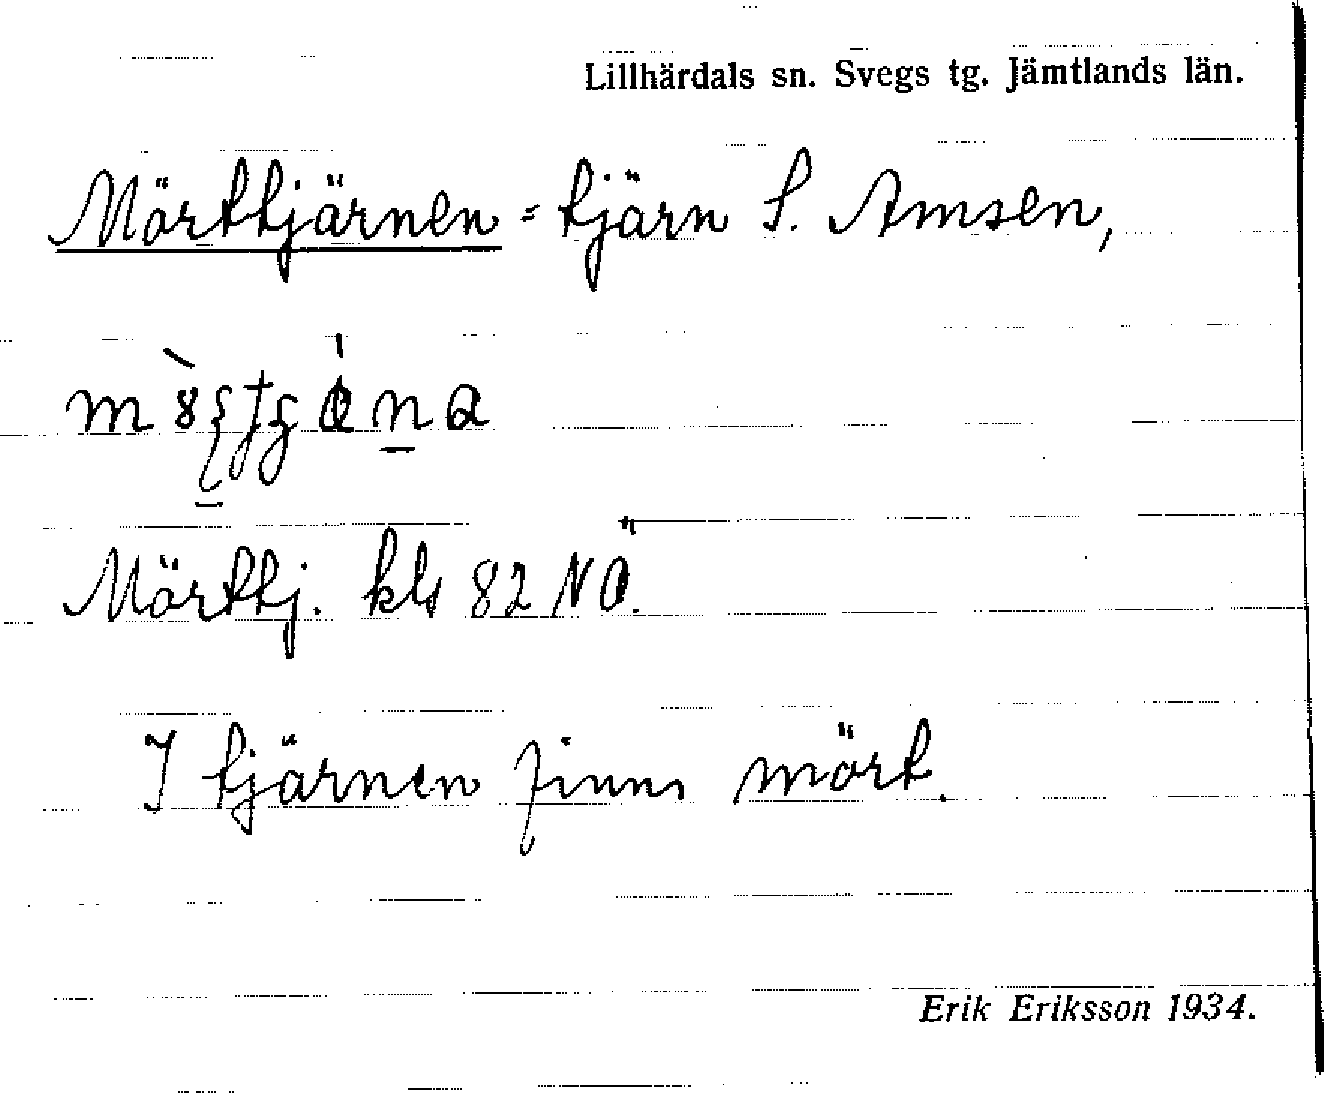 Lillhärdals sn. Svegs tg. Jämtlands län.
Mörttjärnen = tjärn S. Amsen,
Mörttj. kbl 82 NÖ.
I tjärnen finns mört.
Erik Eriksson 1934.